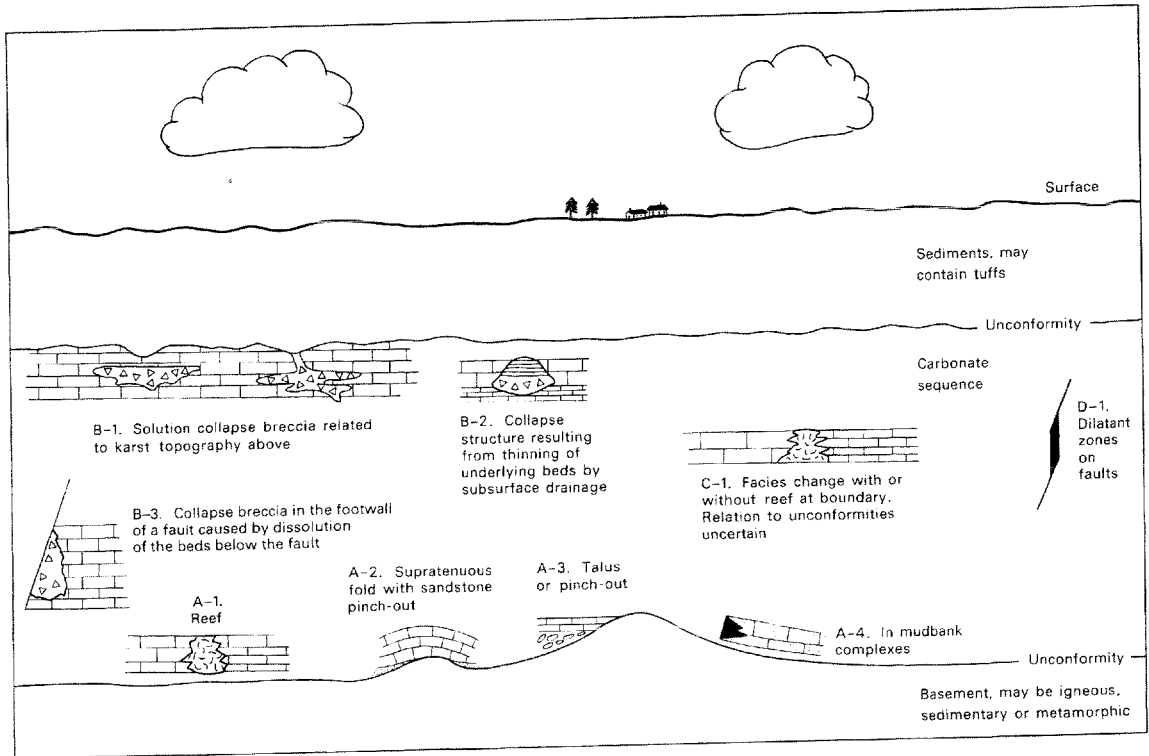 Surface
Sediments, may
contain tuffs
Unconformity
Carbonate
sequence
B-1. Solution collapse breccia related
to karst topography above
B-2. Collapse
structure resulting
from thinning of
underlying beds by
subsurface drainage
D-1.
Dilatant
zones
on
faults
C-1. Facies change with or
without reef at boundary.
Relation to unconformities
uncertain
B-3. Collapse breccia in the footwall
of a fault caused by dissolution
of the beds below the fault
A-1.
Reef
A-2. Supratenuous
fold with sandstone
pinch-out
A-3. Talus
or pinch-out
A-4. In mudbank
complexes
Unconformity
Basement, may be igneous,
sedimentary or metamorphic